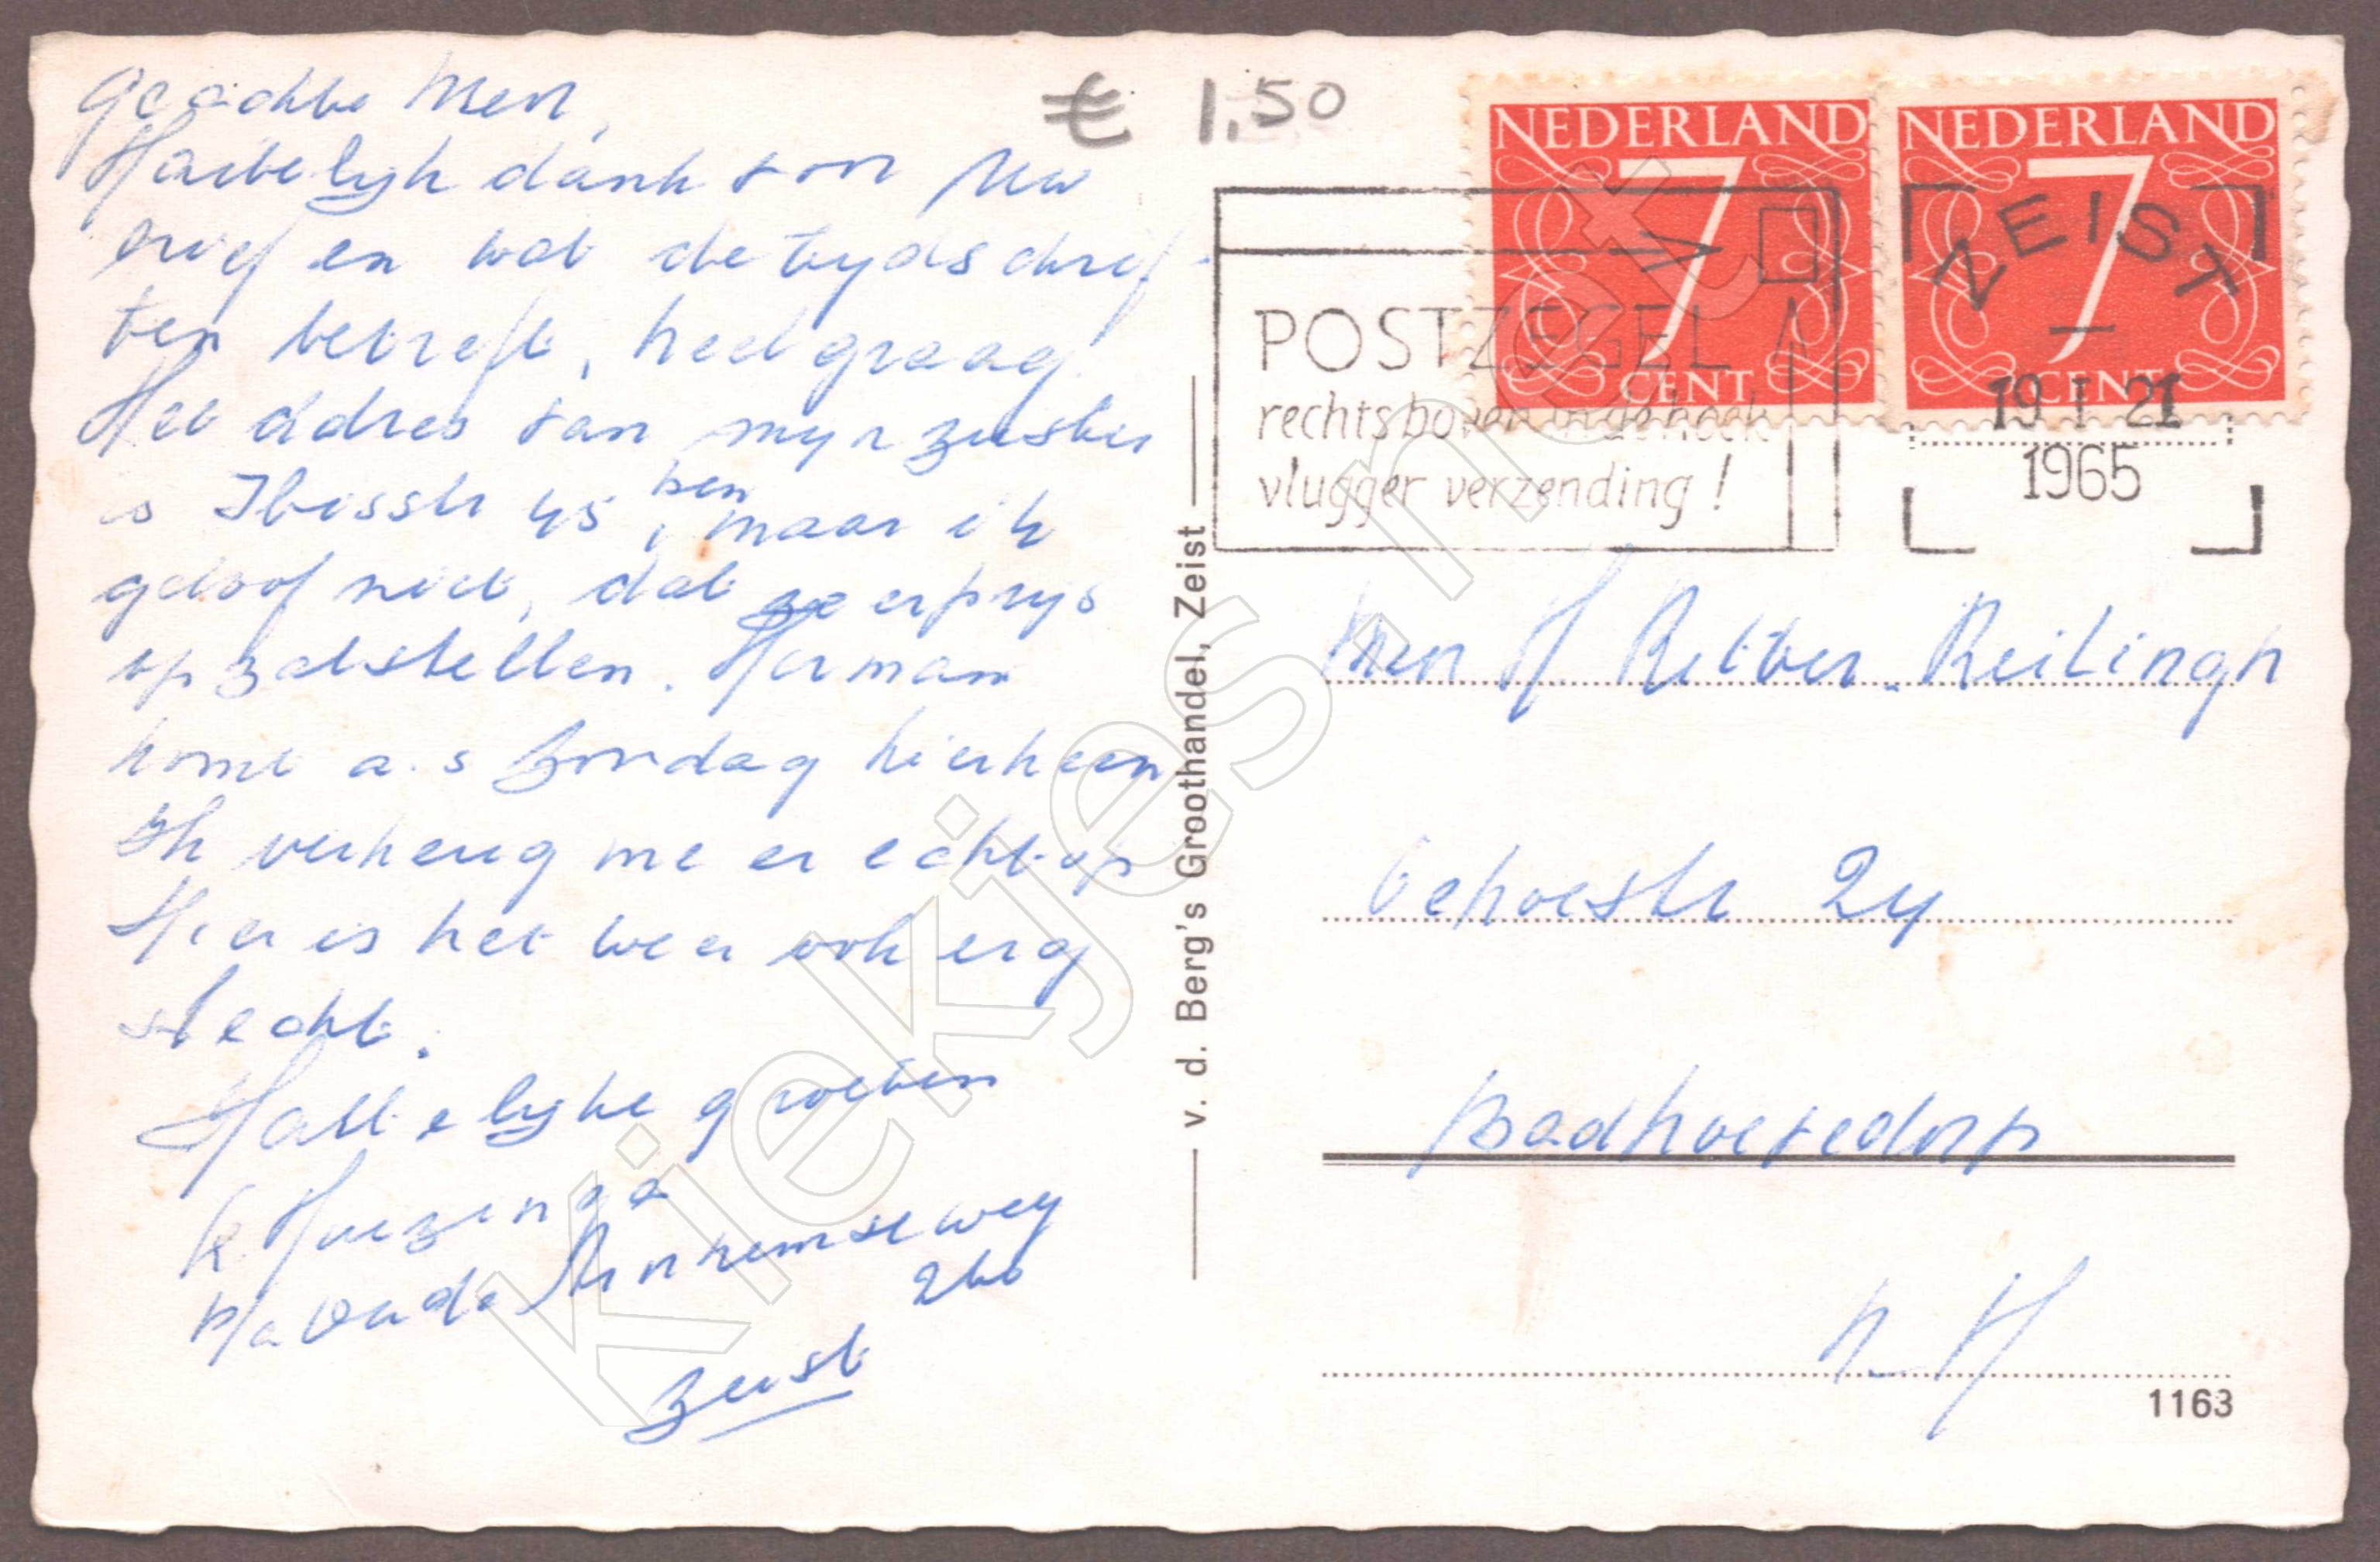 Geachte Heer,
Hartelijk dank voor Uw
brief en wat de tijdschrif-
ten betreft, heel graag.
Het adres van mijn zuster
is Ibisstr 45, maar ik
ben
geloof niet, dat ze er prijs
op zal stellen. Herman
komt a.s zondag hierheen
Ik verheug me er echt op
Hier is het weer ook erg
slecht.
Hartelijke groeten
K. Huizenga
p/a Oude Arnhemseweg
260
Zeist
€ 1.50
NEDERLAND
7
CENT
NEDERLAND
7
CENT
POSTZEGEL
rechtsboven in de hoek
vlugger verzending!
ZEIST
19 I 21
1965
Heer H Ritter Reilingh
24
Badhoevedorp
N-H
1163
v. d. Berg's Groothandel, Zeist
kiekjes.net